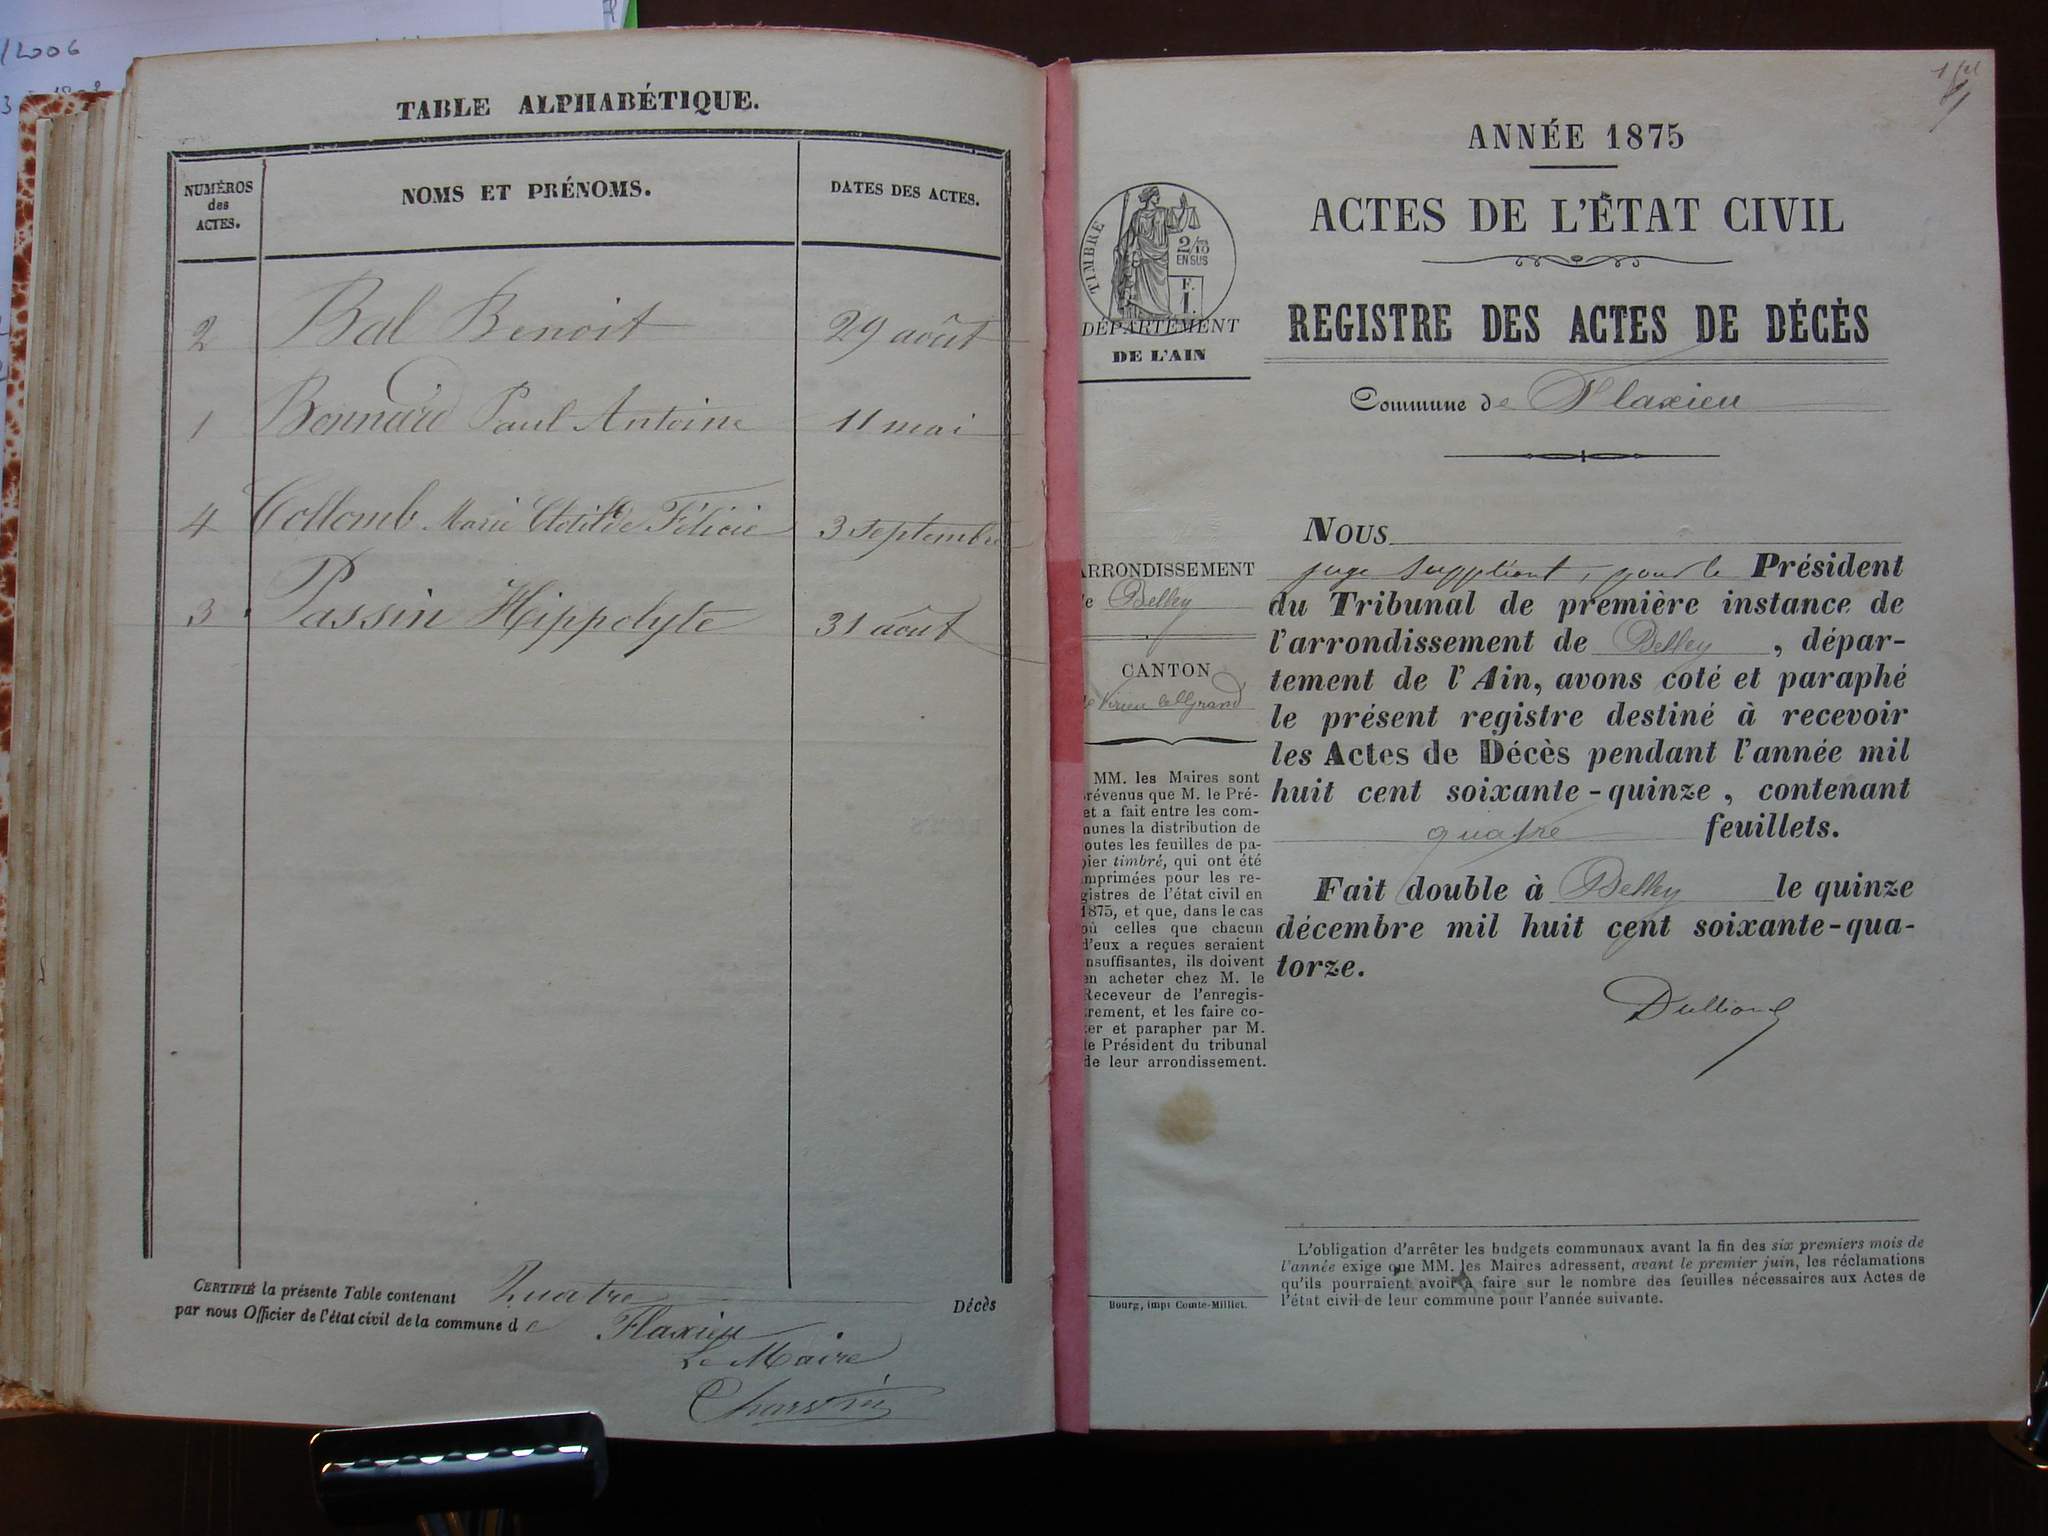 /2006
TABLE ALPHABÉTIQUE.
NUMÉROS
des
ACTES.
NOMS ET PRÉNOMS.
DATES DES ACTES.
2 Bal Benoit 29 août
1 Bonnard Paul Antoine 11 mai
4 Collomb Marie Clotilde Félicie 3 septembre
3 Passin Hippolyte 31 août
CERTIFIÉ la présente Table contenant Quatre Décès
par nous Officier de l'état civil de la commune de Flaxieu
Le Maire
Charvin
ANNÉE 1875
ACTES DE L'ÉTAT CIVIL
REGISTRE DES ACTES DE DÉCÈS
Commune de Flaxieu
TIMBRE
2/10
EN SUS
F.
1.
DÉPARTEMENT
DE L'AIN
ARRONDISSEMENT
de Belley
CANTON
de Virieu le Grand
MM. les Maires sont
prévenus que M. le Pré-
fet a fait entre les com-
munes la distribution de
toutes les feuilles de pa-
pier timbré, qui ont été
imprimées pour les re-
gistres de l'état civil en
1875, et que, dans le cas
où celles que chacun
d'eux a reçues seraient
insuffisantes, ils doivent
en acheter chez M. le
Receveur de l'enregis-
trement, et les faire co-
ter et parapher par M.
le Président du tribunal
de leur arrondissement.
Bourg, impr Comte-Milliet.
NOUS
juge suppléant, pour le Président
du Tribunal de première instance de
l'arrondissement de Belley, dépar-
tement de l'Ain, avons coté et paraphé
le présent registre destiné à recevoir
les Actes de Décès pendant l'année mil
huit cent soixante-quinze, contenant
quatre feuillets.
Fait double à Belley le quinze
décembre mil huit cent soixante-qua-
torze.
L'obligation d'arrêter les budgets communaux avant la fin des six premiers mois de
l'année exige que MM. les Maires adressent, avant le premier juin, les réclamations
qu'ils pourraient avoir à faire sur le nombre des feuilles nécessaires aux Actes de
l'état civil de leur commune pour l'année suivante.